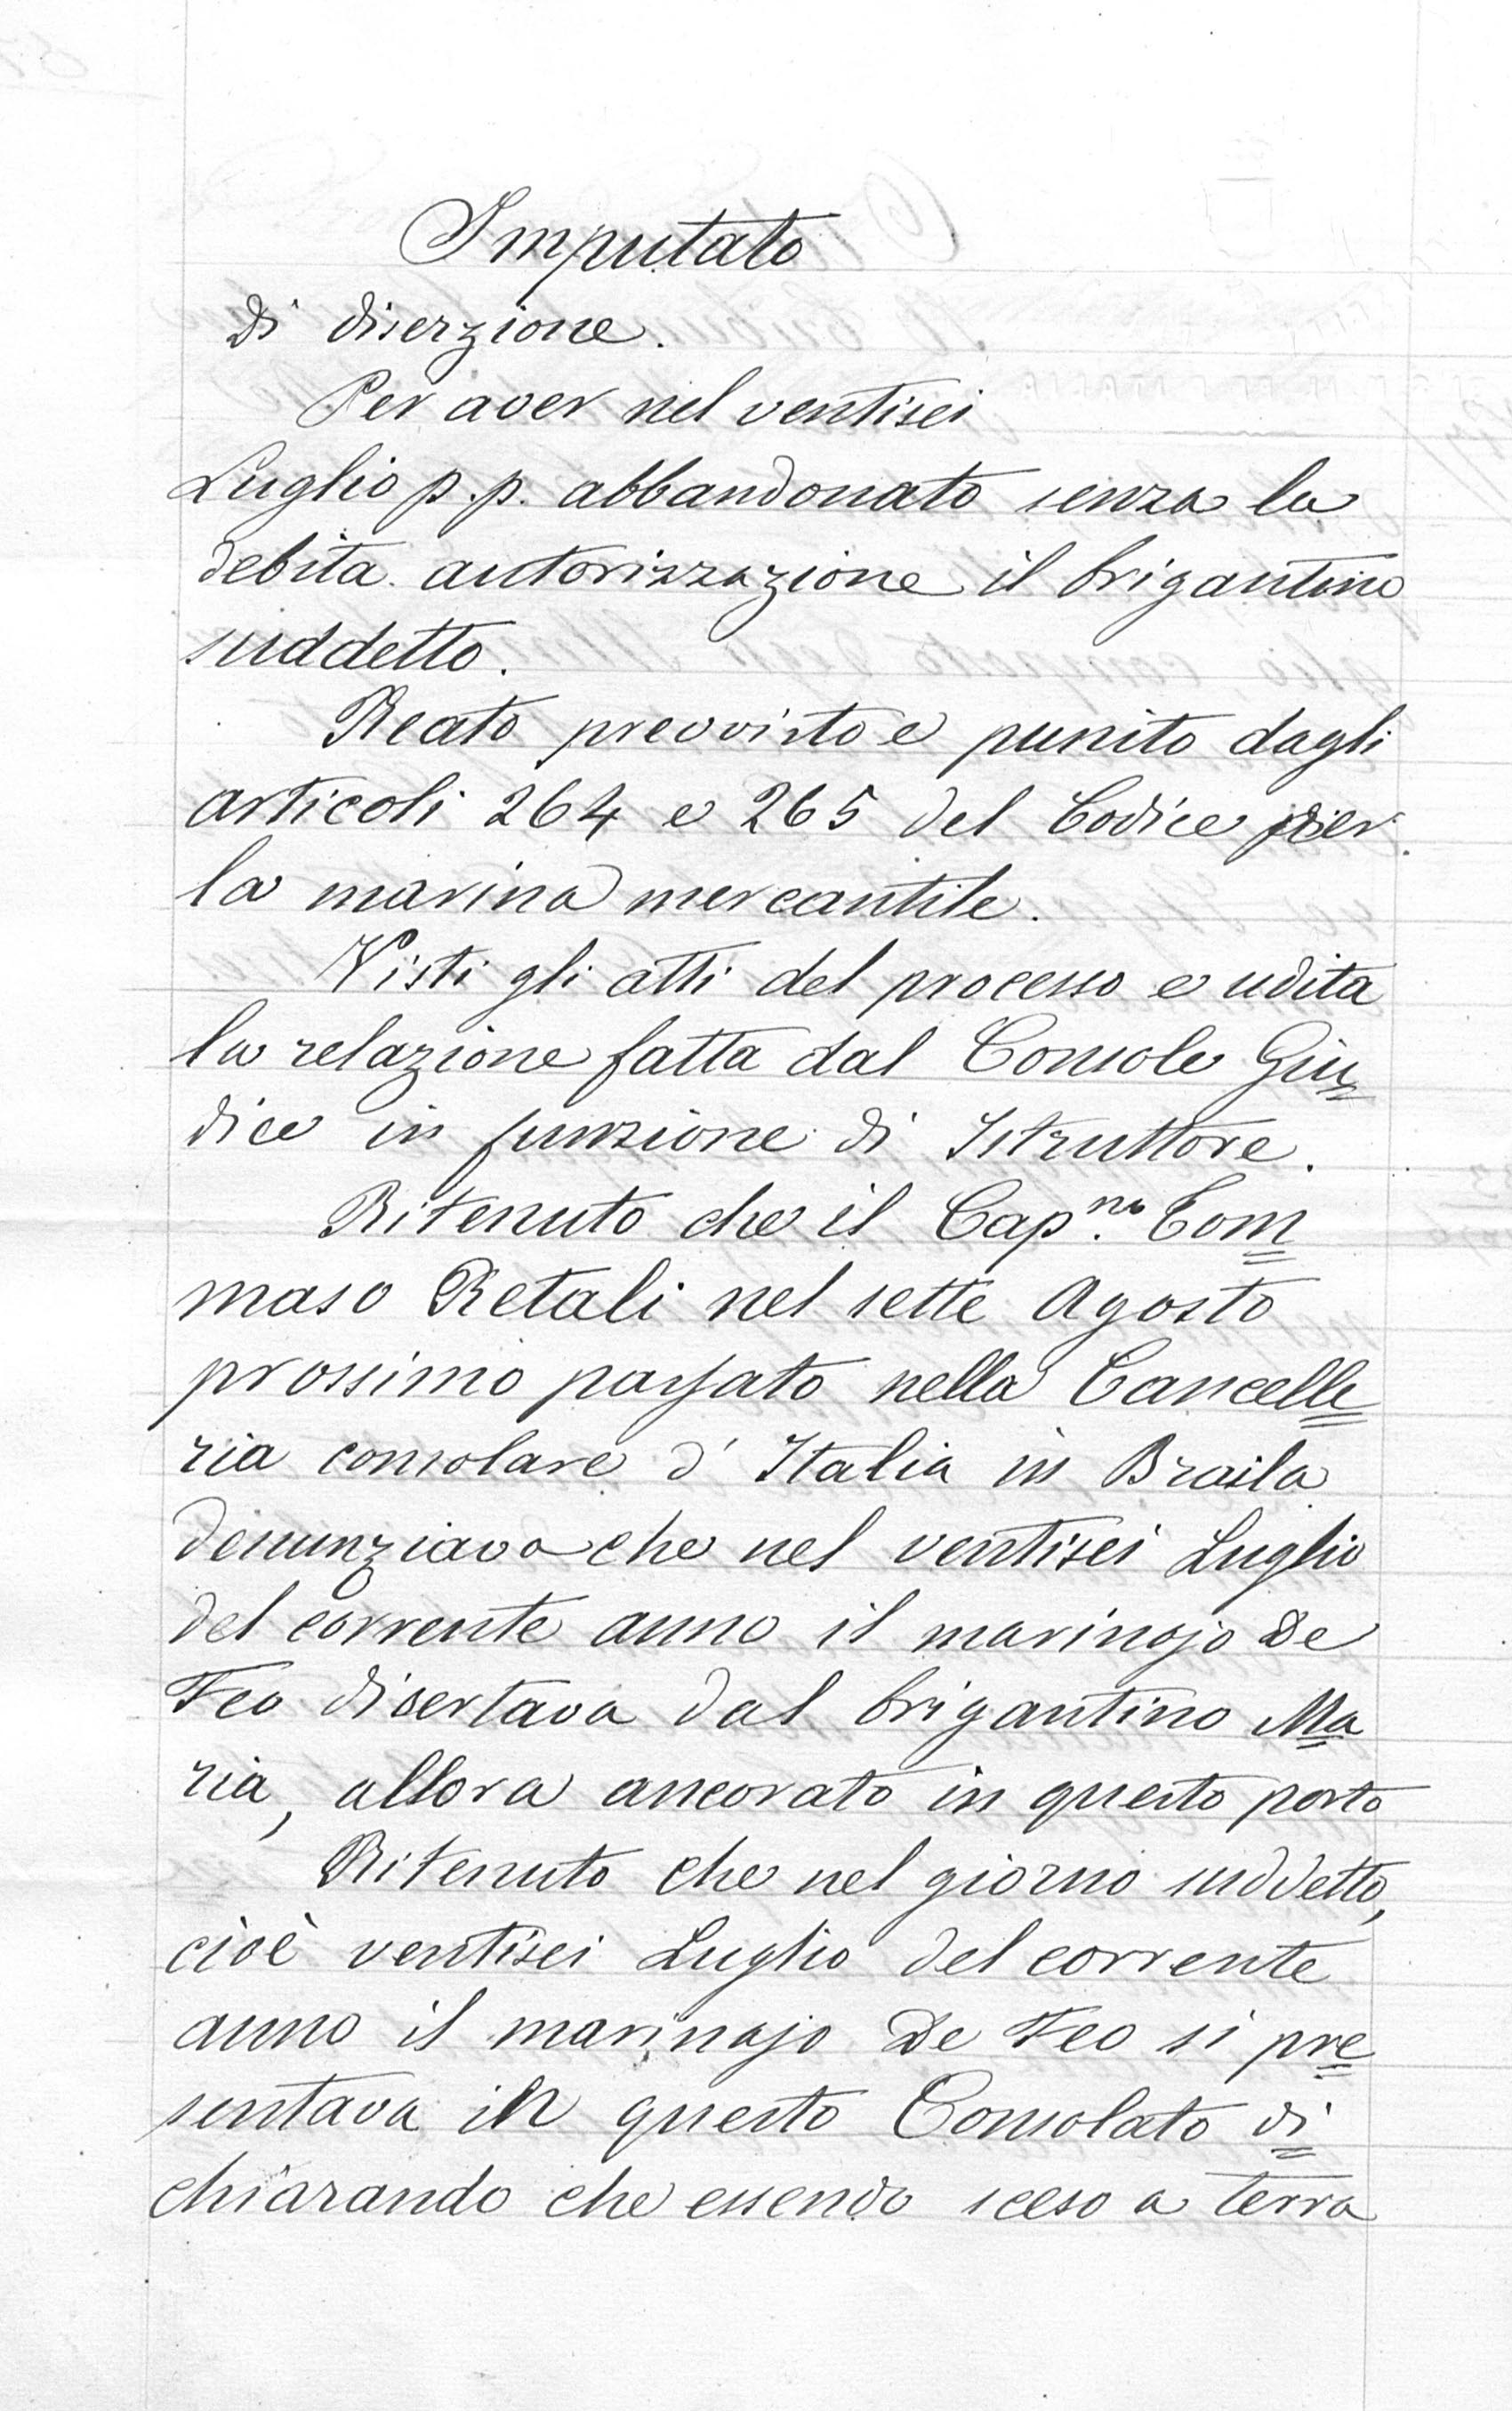 Imputato
di diserzione.
Per aver nel ventisei
Luglio p.p. abbandonato senza la
debita autorizzazione il brigantino
suddetto.
Reato provvisto e punito dagli
articoli 264 e 265 del Codice per
la marina mercantile.
Visti gli atti del processo e udita
la relazione fatta dal Console Giu=
dice in funzione di Istruttore.
Ritenuto che il Cap.no Tom=
maso Retali nel sette Agosto
prossimo passato nella Cancelle=
ria consolare d'Italia in Braila
denunziava che nel ventisei Luglio
del corrente anno il marinajo De
Feo disertava dal brigantino Ma=
ria, allora ancorato in questo porto
Ritenuto che nel giorno suddetto,
cioè ventisei Luglio del corrente
anno il marinajo De Feo si pre=
sentava in questo Consolato di=
chiarando che essendo sceso a terra